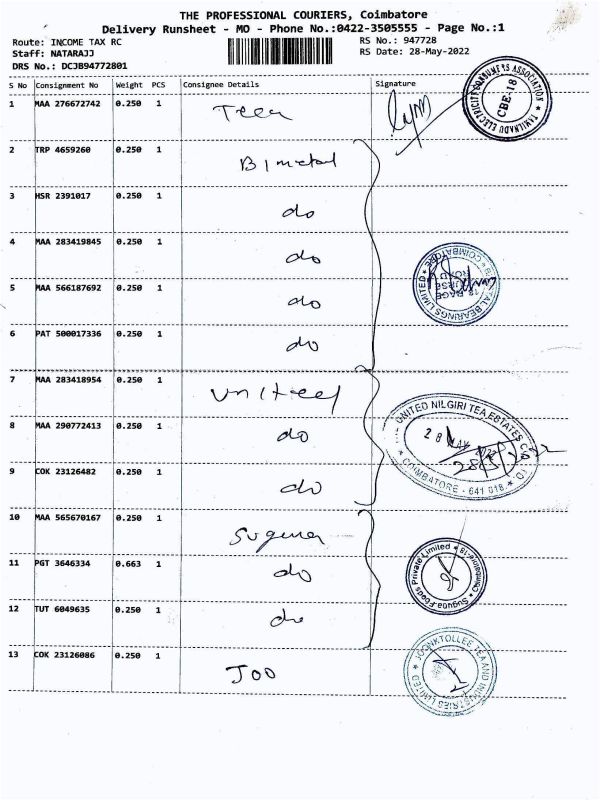 THE PROFESSIONAL COURIERS, Coimbatore
Delivery Runsheet - MO - Phone No.:0422-3505555 - Page No.:1
Route: INCOME TAX RC
RS No.: 947728
Staff: NATARAJJ
RS Date: 28-May-2022
DRS No.: DCJB94772801
S No Consignment No Weight PCS Consignee Details Signature
1 MAA 276672742 0.250 1 Teca
TAMILNADU ELECTRICITY CONSUMERS ASSOCIATION
CBE-18
2 TRP 4659260 0.250 1 Bimetal
3 HSR 2391017 0.250 1 do
4 MAA 283419845 0.250 1 do
BEARINGS LIMITED
COIMBATORE
5 MAA 566187692 0.250 1 do
6 PAT 500017336 0.250 1 do
7 MAA 283418954 0.250 1 United
UNITED NILGIRI TEA ESTATES CO LTD
8 MAA 290772413 0.250 1 do
28 MAY 2022
9 COK 23126482 0.250 1 do
COIMBATORE - 641 018.
10 MAA 565670167 0.250 1 Suguna
Suguna Foods Private Limited
Coimbatore-18
11 PGT 3646334 0.663 1 do
12 TUT 6049635 0.250 1 do
13 COK 23126086 0.250 1 Joo
JOONKTOLLEE TEA AND INDUSTRIES LIMITED